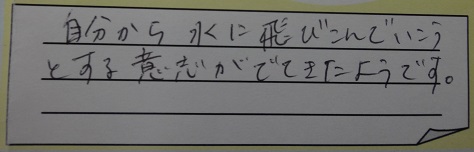 自分から 水に飛びこんでいこう
とする意志がでてきたようです。